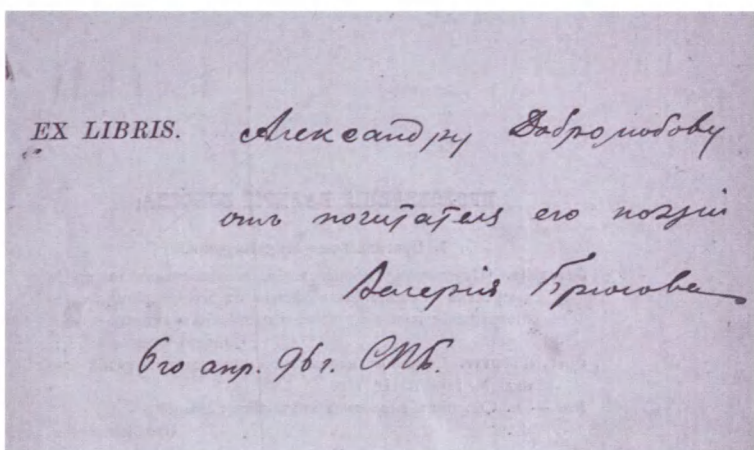 EX LIBRIS. Александру Добролюбову
отъ почитателя его поэзіи
Валерія Брюсова
6го апр. 96 г. СПБ.